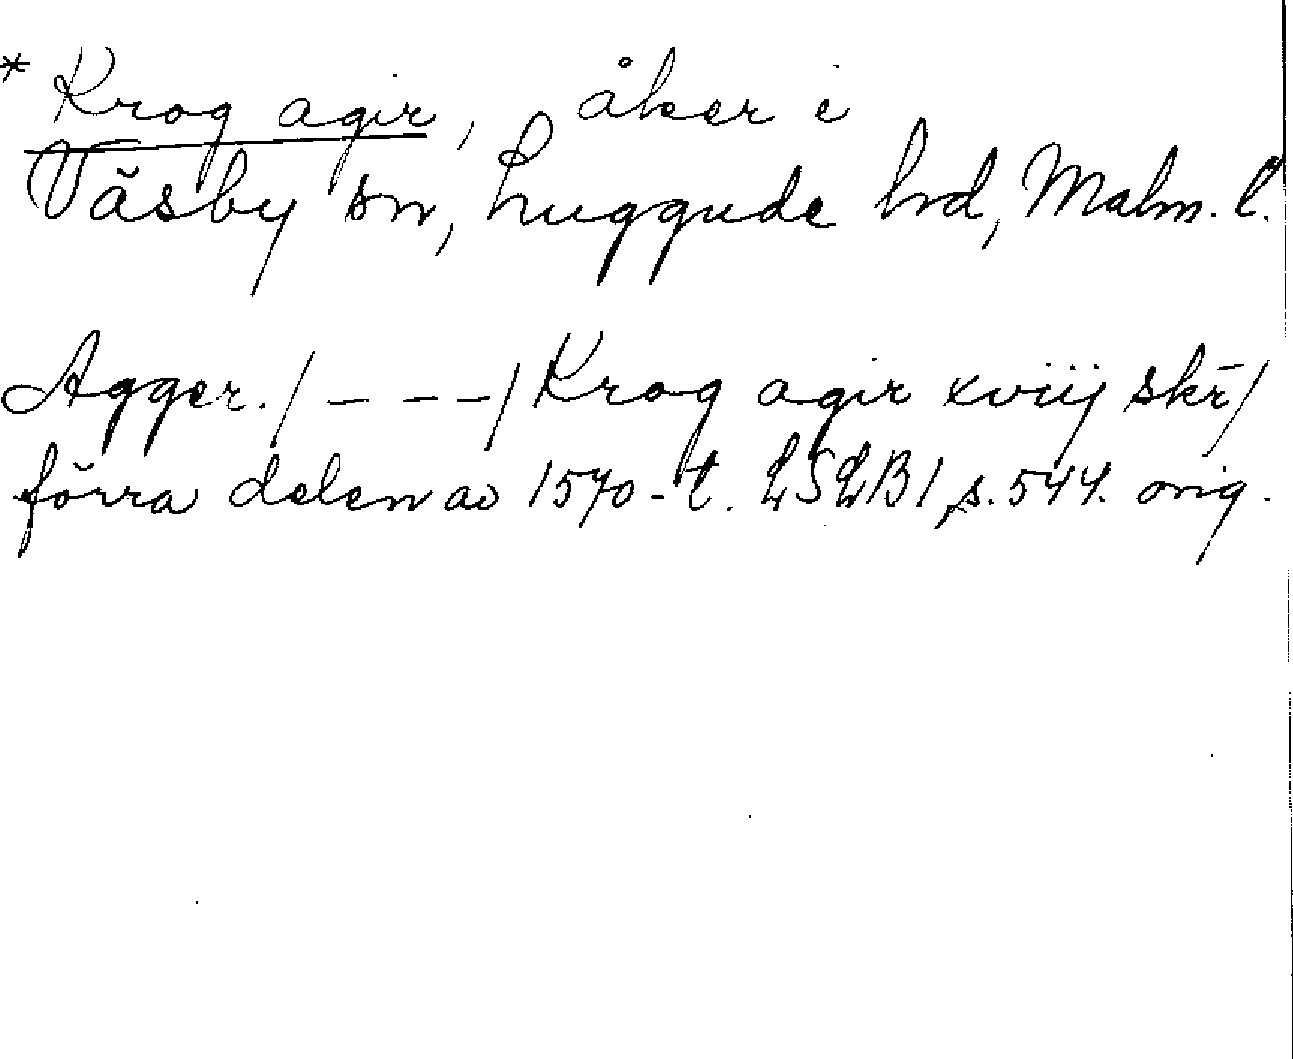 * Krog agir, åker i
Väsby sn, Luggude hrd, Malm. l.
Agger. / - - - / Krog agir xviij skr̄ /
förra delen av 1570-t. LSLB 1, s. 544. orig.